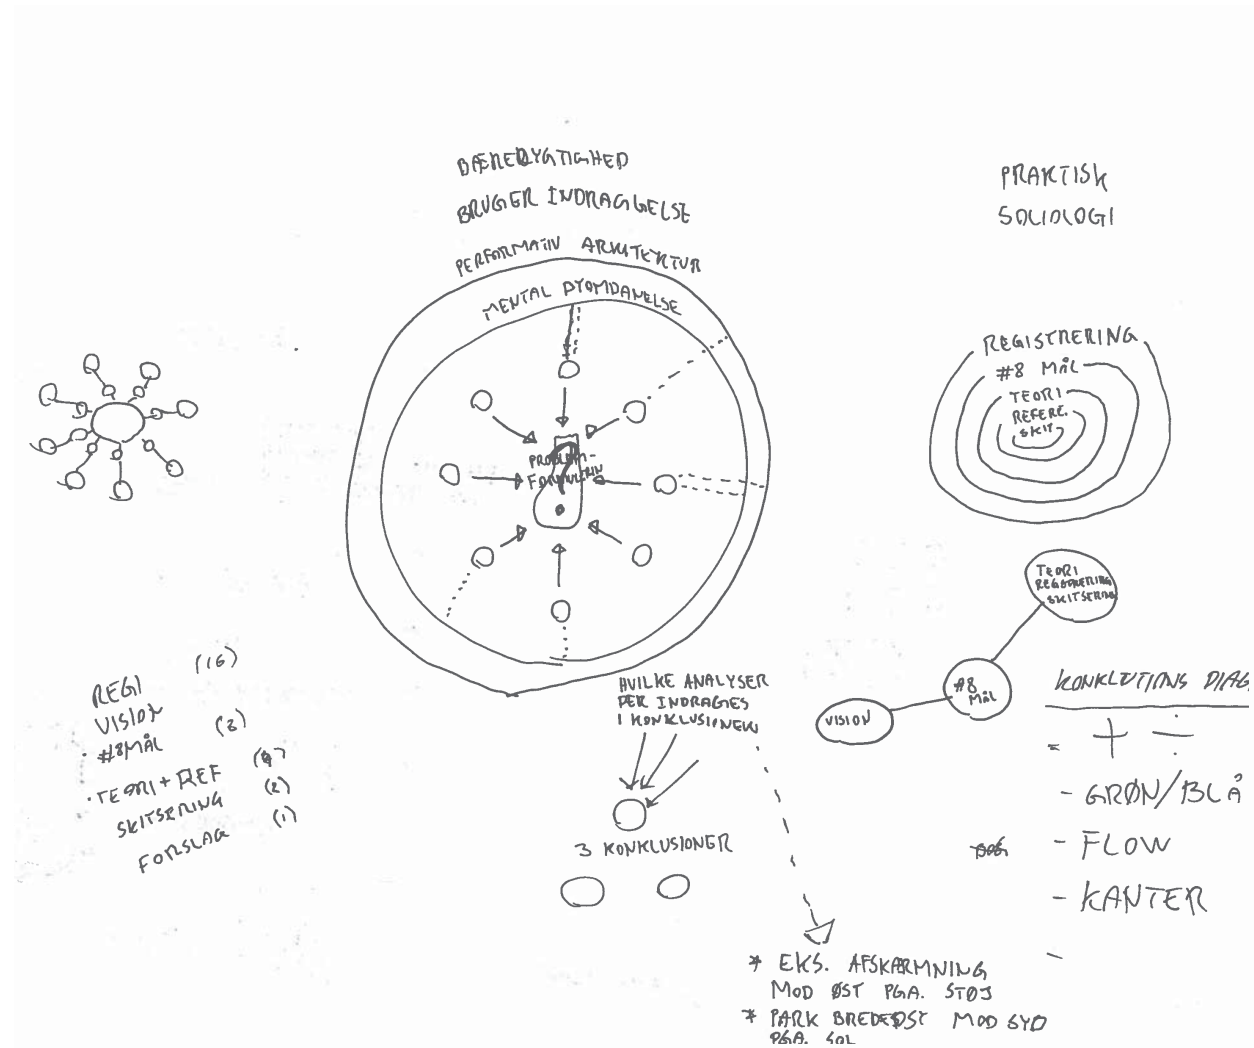 BÆREDYGTIGHED
BRUGER INDRAGGELSE
PERFORMATIV ARKITEKTUR
MENTAL BYOMDANELSE
PROBLEM-
FORMULERIN
?
PRAKTISK
SOCIOLOGI
REGISTRERING
#8 MÅL
TEORI
REFERE.
SKIT
TEORI
REGISTRERING
SKITSERING
#8
MÅL
VISION
REGI (16)
VISION
#8 MÅL (8)
TEORI + REF
SKITSERING (2)
FORSLAG (1)
HVILKE ANALYSER
DER INDRAGES
I KONKLUSIONEN
3 KONKLUSIONER
KONKLUTIONS DIAG
- + ÷
- GRØN/BLÅ
- FLOW
- KANTER
-
* EKS. AFSKÆRMNING
MOD ØST PGA. STØJ
* PARK BREDEDST MOD SYD
PGA. SOL